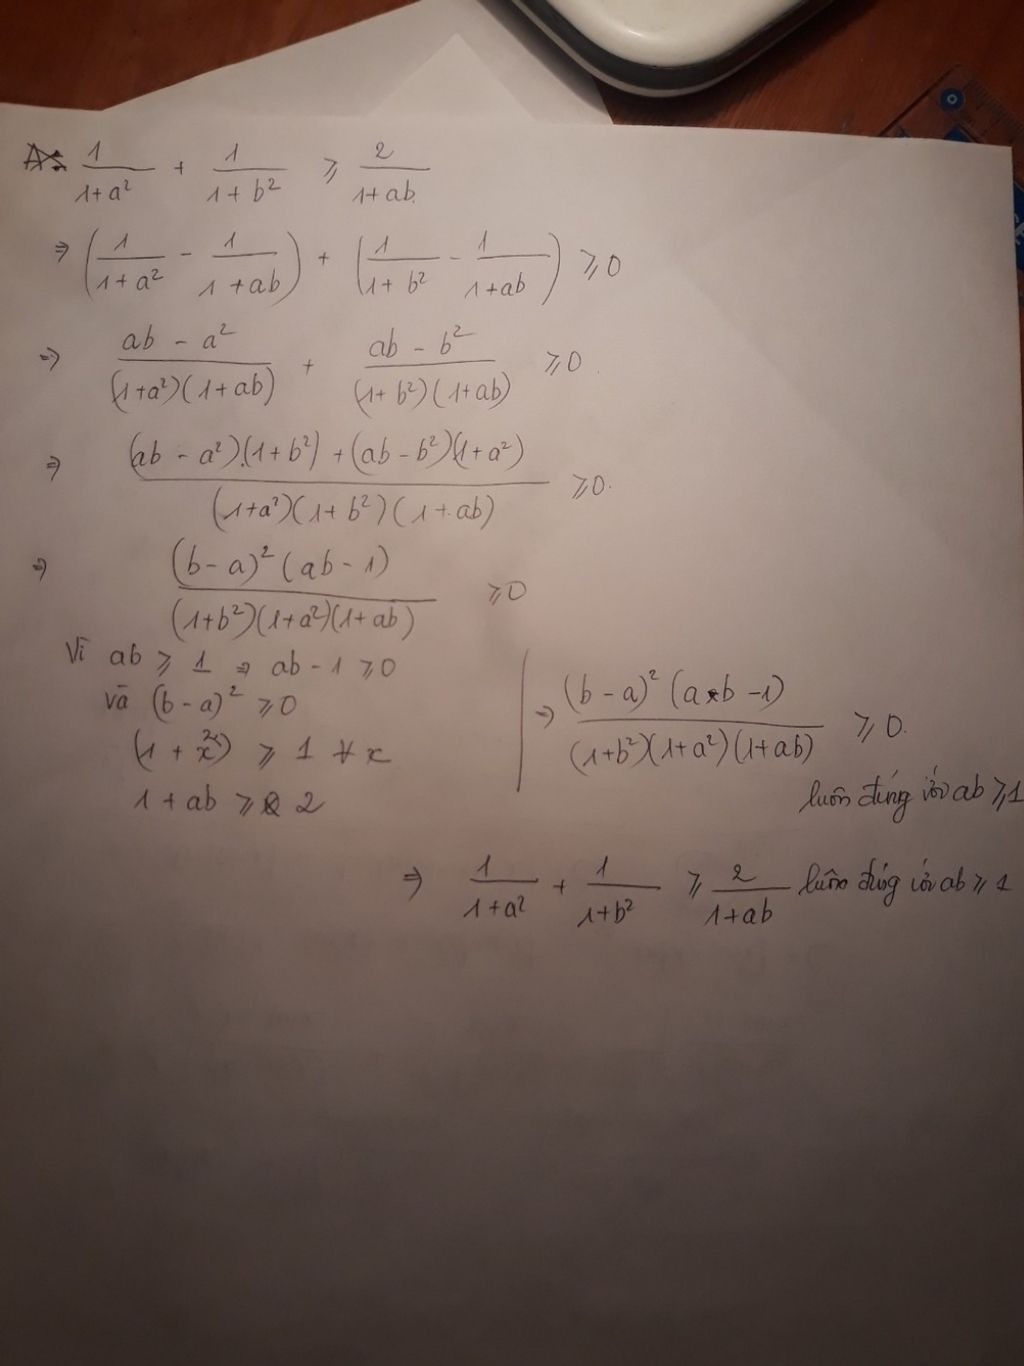 1/(1+a²) + 1/(1+b²) ⩾ 2/(1+ab)
⇒ (1/(1+a²) - 1/(1+ab)) + (1/(1+b²) - 1/(1+ab)) ⩾ 0
⇒ (ab - a²)/((1+a²)(1+ab)) + (ab - b²)/((1+b²)(1+ab)) ⩾ 0
⇒ ((ab - a²).(1+b²) + (ab - b²)(1+a²))/((1+a²)(1+b²)(1+ab)) ⩾ 0.
⇒ ((b-a)² (ab-1))/((1+b²)(1+a²)(1+ab)) ⩾ 0
Vì ab ⩾ 1 ⇒ ab-1 ⩾ 0
và (b-a)² ⩾ 0
(1+x²) ⩾ 1 ∀x
1+ab ⩾ 2
⇒ ((b-a)² (ab-1))/((1+b²)(1+a²)(1+ab)) ⩾ 0.
luôn đúng với ab ⩾ 1
⇒ 1/(1+a²) + 1/(1+b²) ⩾ 2/(1+ab) luôn đúng với ab ⩾ 1